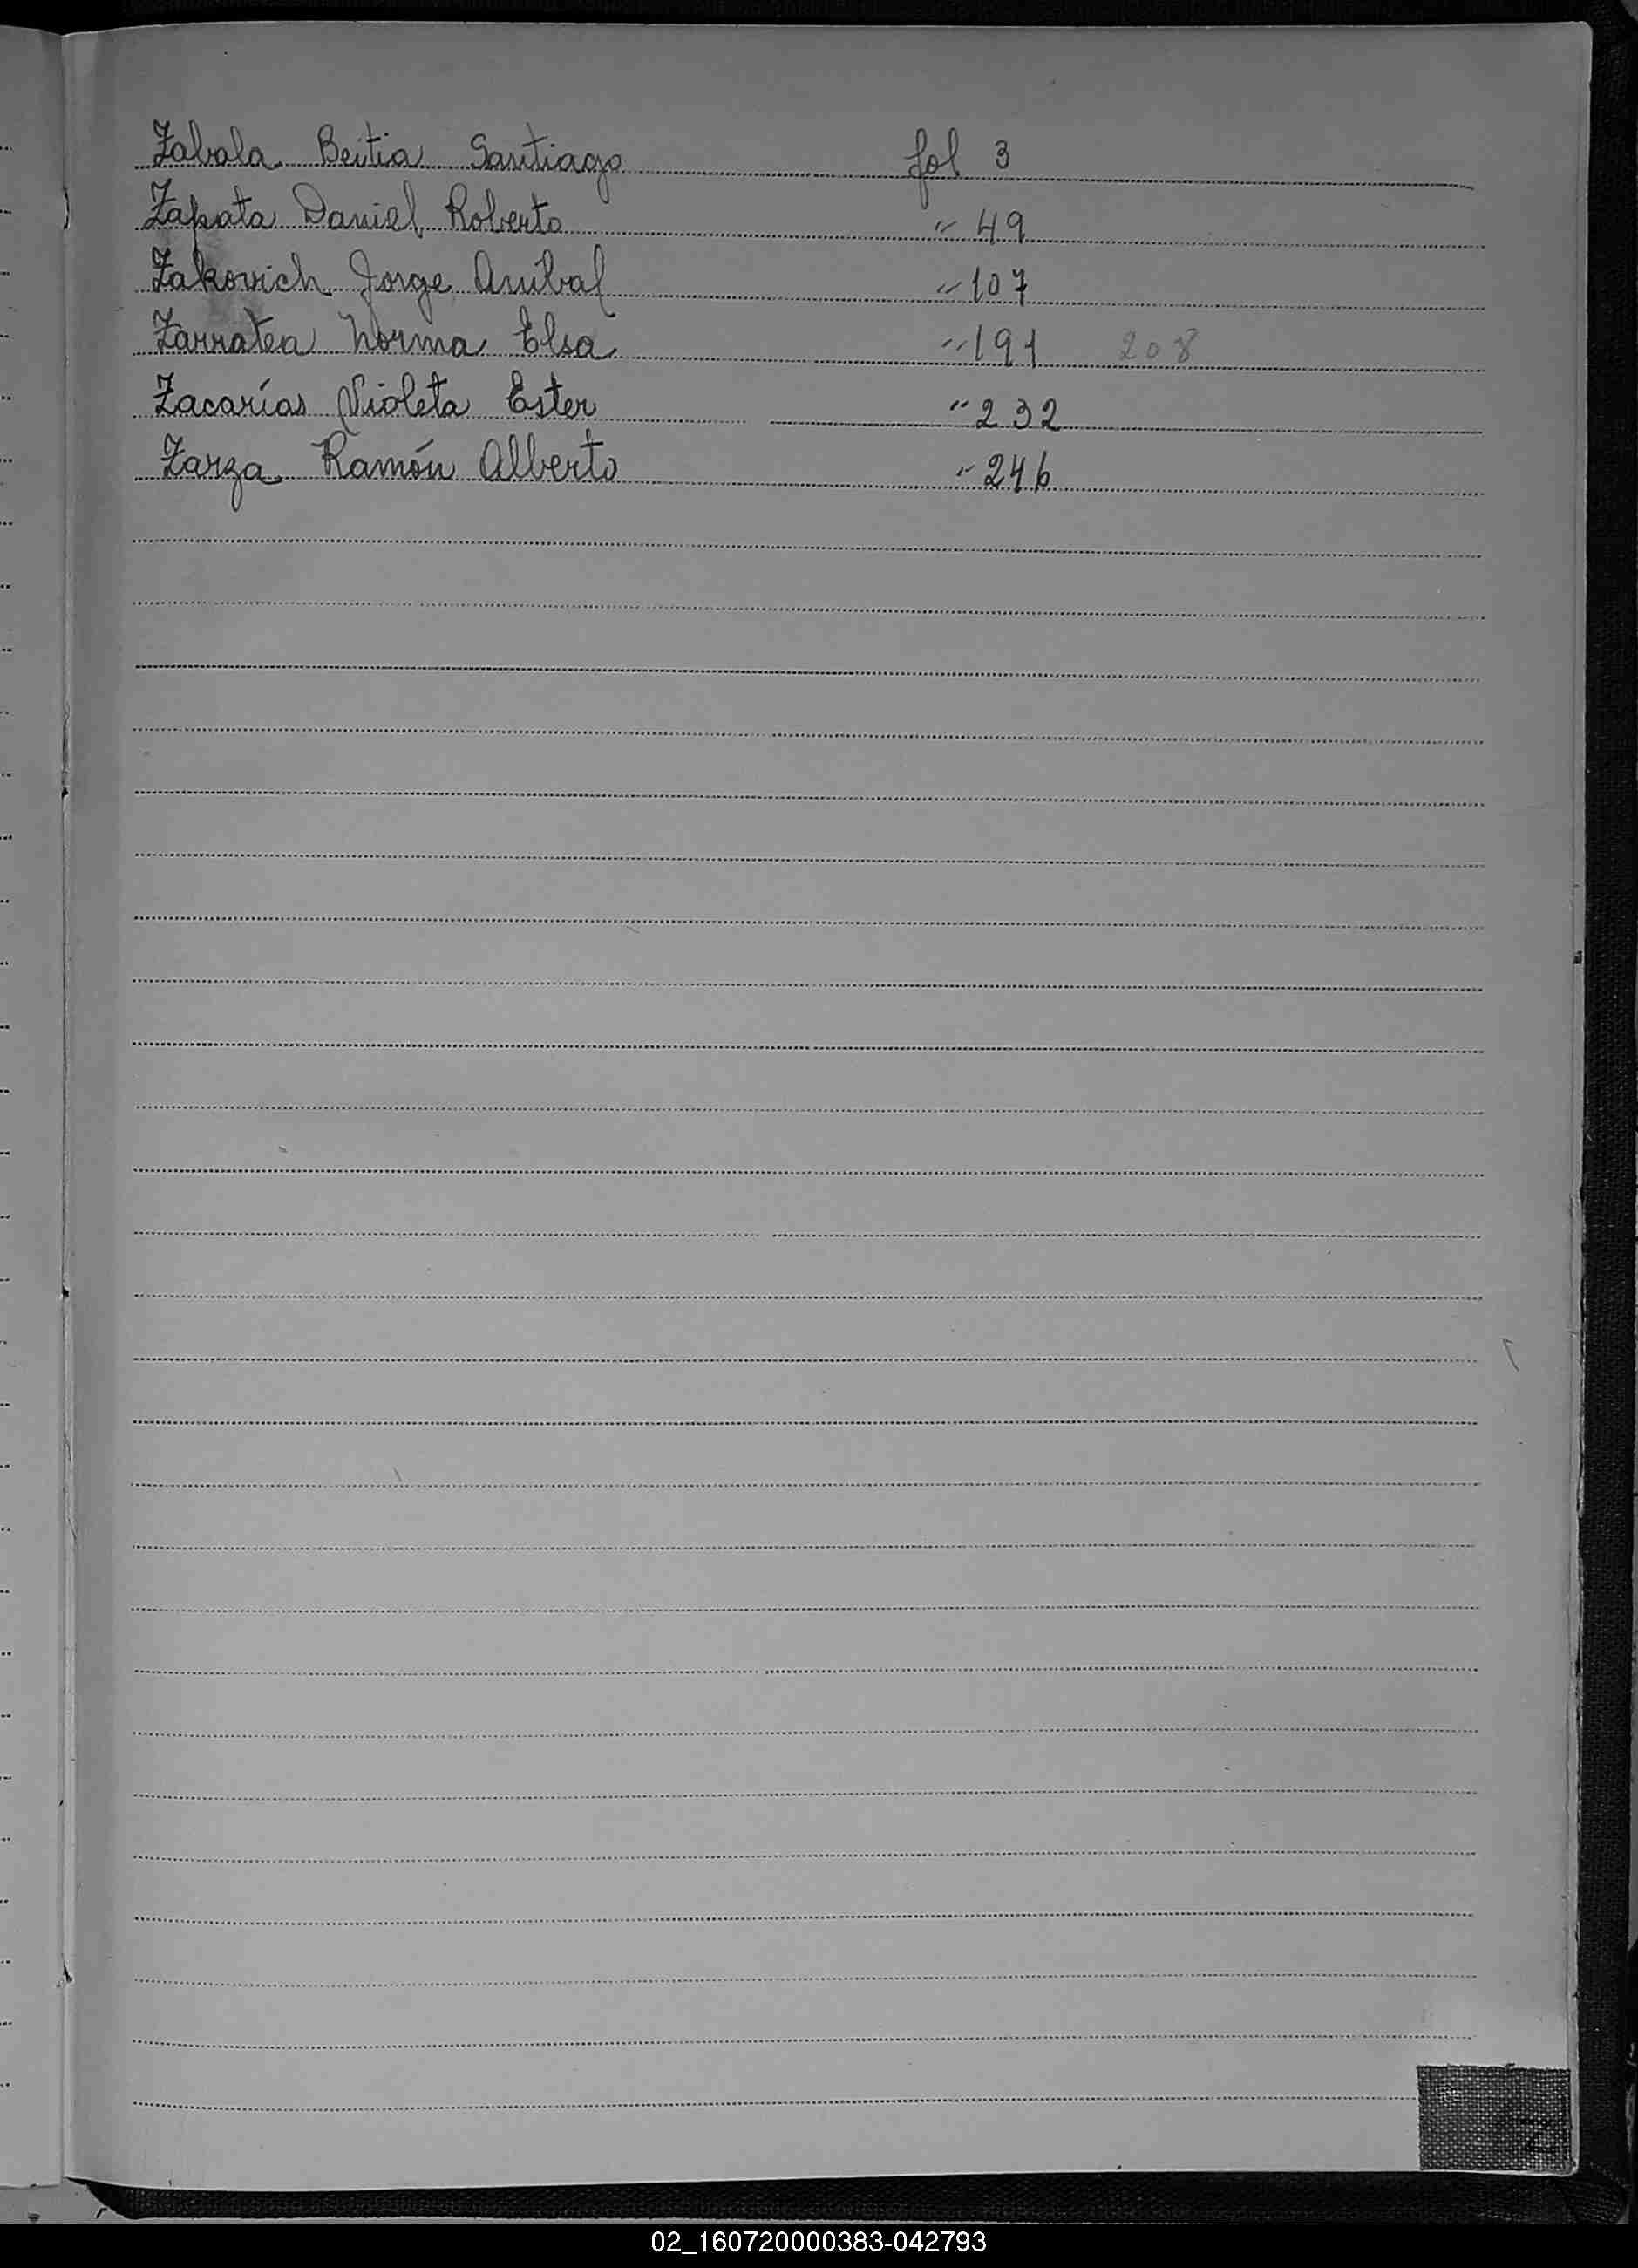 Zabala Beitia Santiago fol 3
Zapata Daniel Roberto " 49
Zakovich Jorge Aníbal " 107
Zarratea Norma Elsa " 191 208
Zacarías Violeta Ester " 232
Zarza Ramón Alberto " 246
Z
02_160720000383-042793